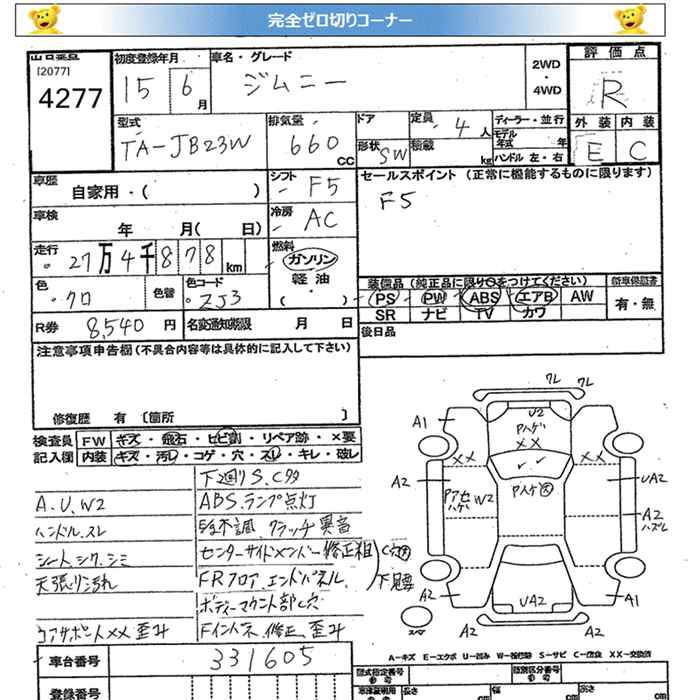 完全ゼロ切りコーナー
出品番号 初度登録年月 車名・グレード 2WD ・ 4WD 評価点
[2077]
4277 15 6月 ジムニー R
型式 排気量 ドア 定員 ディーラー・並行 外装 内装
TA-JB23W 660 CC 形状 SW 4人 積載 kg モデル年式 年 ハンドル 左・右 E C
車歴 自家用・( ) シフト F5 セールスポイント (正常に機能するものに限ります)
F5
車検 年 月( 日) 冷房 AC
走行 27万4千878km 燃料 ガソリン 軽油 ・ ( )
色 クロ 色替 色コード ZJ3
装備品 (純正品に限り○をつけてください) 新車保証書
PS PW ABS エアB AW 有・無
SR ナビ TV カワ
R券 8,540円 名変通知期限 月 日 後日品
注意事項申告欄 (不具合内容等は具体的に記入して下さい)
修復歴 有 [箇所 ]
検査員 FW キズ・飛石・ヒビ割・リペア跡・×要
記入欄 内装 キズ・汚レ・コゲ・穴・スレ・キレ・破レ
下廻りS.Cタ
A.U.W2 ABSランプ点灯
ハンドルスレ クラッチ異音
シート、シワ、シミ センターサイドメンバー修正粗
天張り汚れ FRフロア、エンドパネル
ボディーマウント部C穴
コアサポートXX歪ミ Fインパネ、修正、歪ミ
ワレ ワレ
A1 U2
Pハゲ
XX
XX XX
A2 A2 UA2
W2 Pハゲ A2
ハズレ
A2 UA2 A1
スペア A2 A2
A-キズ E-エクボ U-凹み W-補修跡 S-サビ C-腐食 XX-交換済
車台番号 331605
登録番号 型式指定番号 類別区分番号
参考 参考
長さ cm 幅 cm 高さ cm